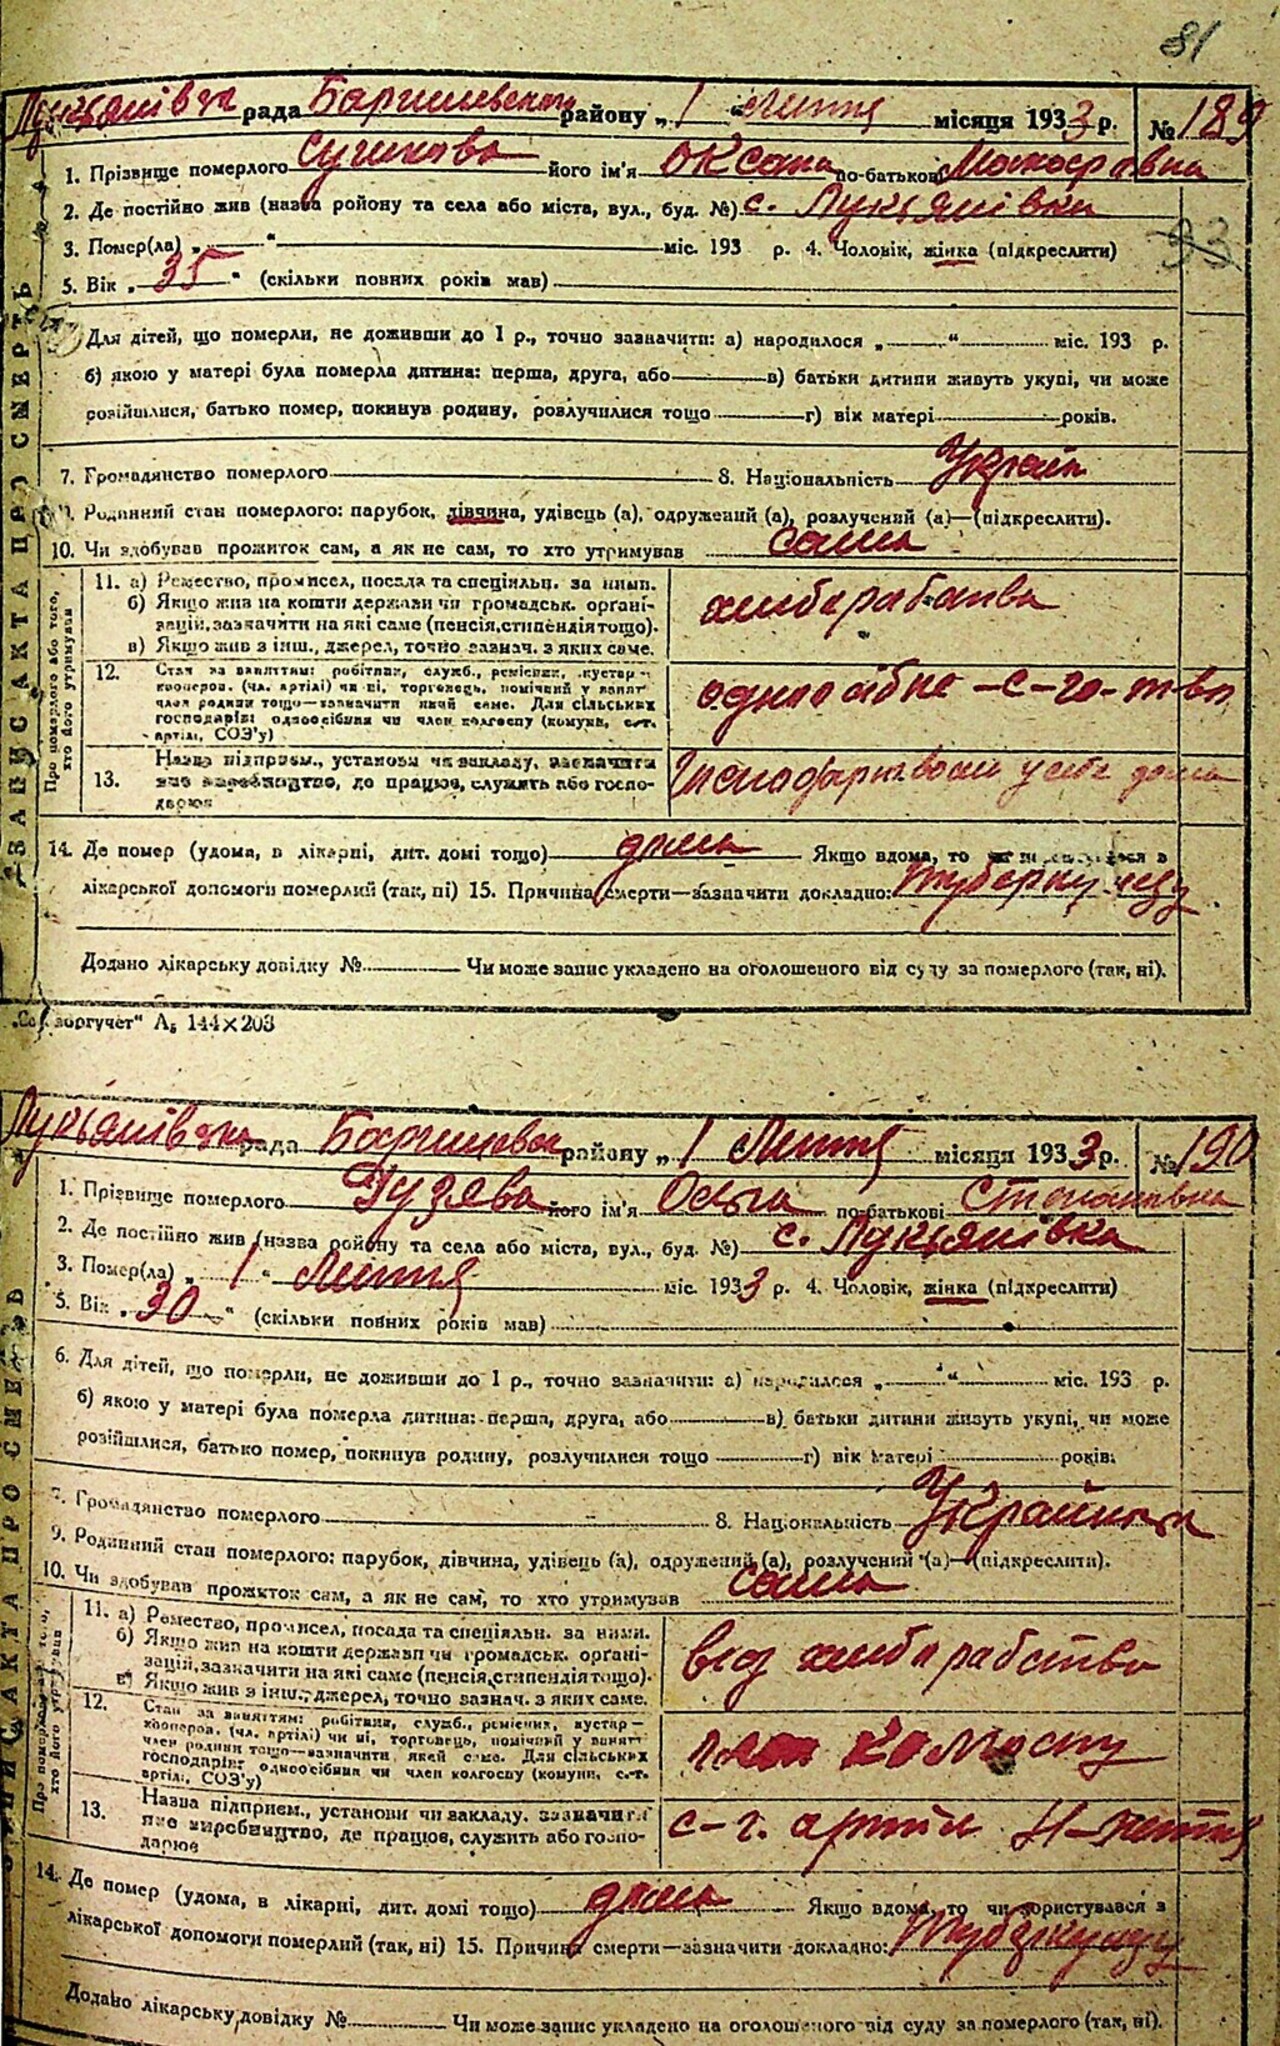 81
Лукьянівзка рада Баришевском району „ 1 " Лютня місяця 1933 р. № 189
1. Прізвище померлого його ім'я Оксана по-батькові Макаровна
2. Де постійно жив (назва ройону та села або міста, вул., буд. №) с. Лукьянівка
3. Помер(ла) „ " міс. 193 р. 4. Чоловік, жінка (підкреслити)
93
5. Вік „ 35 " (скільки повних років мав)
Для дітей, що померли, не доживши до 1 р., точно зазначити: а) народилося „ " міс. 193 р.
б) якою у матері була померла дитина: перша, друга, або в) батьки дитини живуть укупі, чи може
розійшлися, батько помер, покинув родину, розлучилися тощо г) вік матері років.
7. Громадянство померлого 8. Національність Україн
9. Родинний стан померлого: парубок, дівчина, удівець (а), одружений (а), розлучений (а)—(підкреслити).
10. Чи здобував прожиток сам, а як не сам, то хто утримував сама
ЗАПИСКА ПРО СМЕРТЬ
Про померлого або того, хто його утримував
11. а) Ремество, промисел, посада та спеціяльн. за ними.
б) Якщо жив на кошти держави чи громадськ. орґані-
зацій, зазначити на які саме (пенсія, стипендія тощо).
в) Якщо жив з інш., джерел, точно зазнач. з яких саме.
хлиборабства
12. Стан за заняттям: робітник, служб., ремісник, кустар—
кооперов. (чл. артілі) чи ні, торговець, помічний у занят
член родини тощо—зазначити який саме. Для сільських
господарів: одноосібник чи член колгоспу (комуни, с.-г.
артілі, СОЗ'у)
одноосібне -с-го- т-во
13. Назва підприєм., установи чи закладу, зазначити
яке виробництво, де працює, служить або госпо-
дарює
у себе дома
14. Де помер (удома, в лікарні, дит. домі тощо) дома Якщо вдома, то чи користувався з
лікарської допомоги померлий (так, ні) 15. Причина смерти—зазначити докладно: туберкулезу
Додано лікарську довідку № Чи може запис укладено на оголошеного від суду за померлого (так, ні).
„Союзоргучет" А₅ 144×203
Лукьянівзка рада Баришевск району „ 1 Лютня місяця 1933 р. № 190
1. Прізвище померлого Гузєва його ім'я Ольга по-батькові Степановна
2. Де постійно жив (назва ройону та села або міста, вул., буд. №) с. Лукьянівка
3. Помер(ла) „ 1 " Лютня міс. 1933 р. 4. Чоловік, жінка (підкреслити)
5. Вік „ 30 " (скільки повних років мав)
6. Для дітей, що померли, не доживши до 1 р., точно зазначити: а) народилося „ " міс. 193 р.
б) якою у матері була померла дитина: перша, друга, або в) батьки дитини живуть укупі, чи може
розійшлися, батько помер, покинув родину, розлучилися тощо г) вік матері років.
7. Громадянство померлого 8. Національність Українка
9. Родинний стан померлого: парубок, дівчина, удівець (а), одружений (а), розлучений (а)—(підкреслити).
10. Чи здобував прожиток сам, а як не сам, то хто утримував сама
ЗАПИСКА ПРО СМЕРТЬ
Про померлого або того, хто його утримував
11. а) Ремество, промисел, посада та спеціяльн. за ними.
б) Якщо жив на кошти держави чи громадськ. орґані-
зацій, зазначити на які саме (пенсія, стипендія тощо).
в) Якщо жив з інш., джерел, точно зазнач. з яких саме.
від хлиборабство
12. Стан за заняттям: робітник, служб., ремісник, кустар—
кооперов. (чл. артілі) чи ні, торговець, помічний у занят
член родини тощо—зазначити який саме. Для сільських
господарів: одноосібник чи член колгоспу (комуни, с.-г.
артілі, СОЗ'у)
член колгоспу
13. Назва підприєм., установи чи закладу, зазначити
яке виробництво, де працює, служить або госпо-
дарює
с-г. артіл Н-життя
14. Де помер (удома, в лікарні, дит. домі тощо) дома Якщо вдома, то чи користувався з
лікарської допомоги померлий (так, ні) 15. Причина смерти—зазначити докладно: туберкулезу
Додано лікарську довідку № Чи може запис укладено на оголошеного від суду за померлого (так, ні).